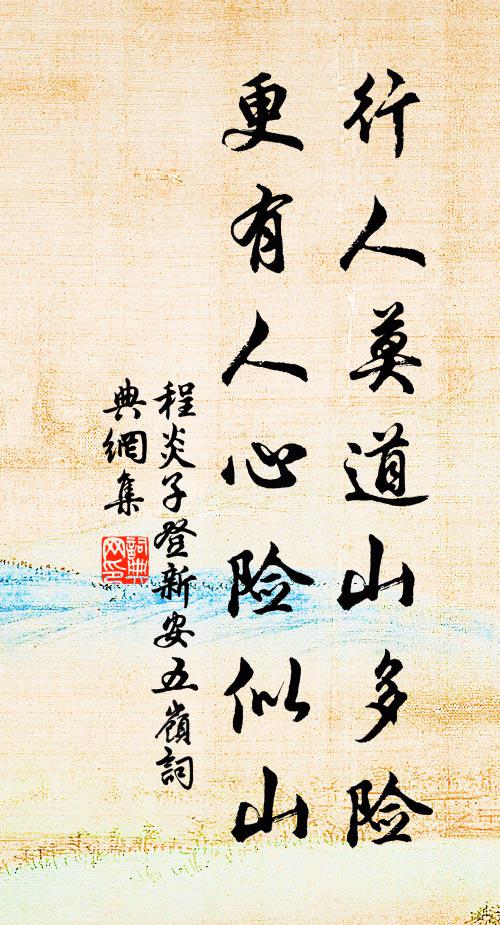 行人莫道山多险
更有人心险似山
程炎子登新安五嶺詞
典網集
詞典
网印